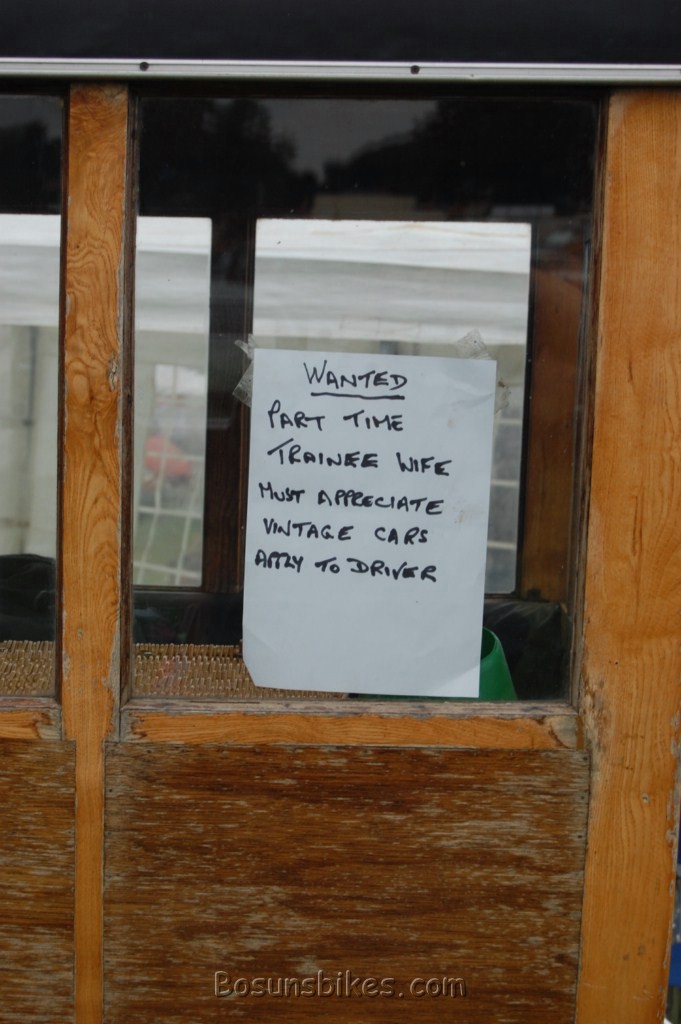 WANTED
PART TIME
TRAINEE WIFE
MUST APPRECIATE
VINTAGE CARS
APPLY TO DRIVER
Bosunsbikes.com